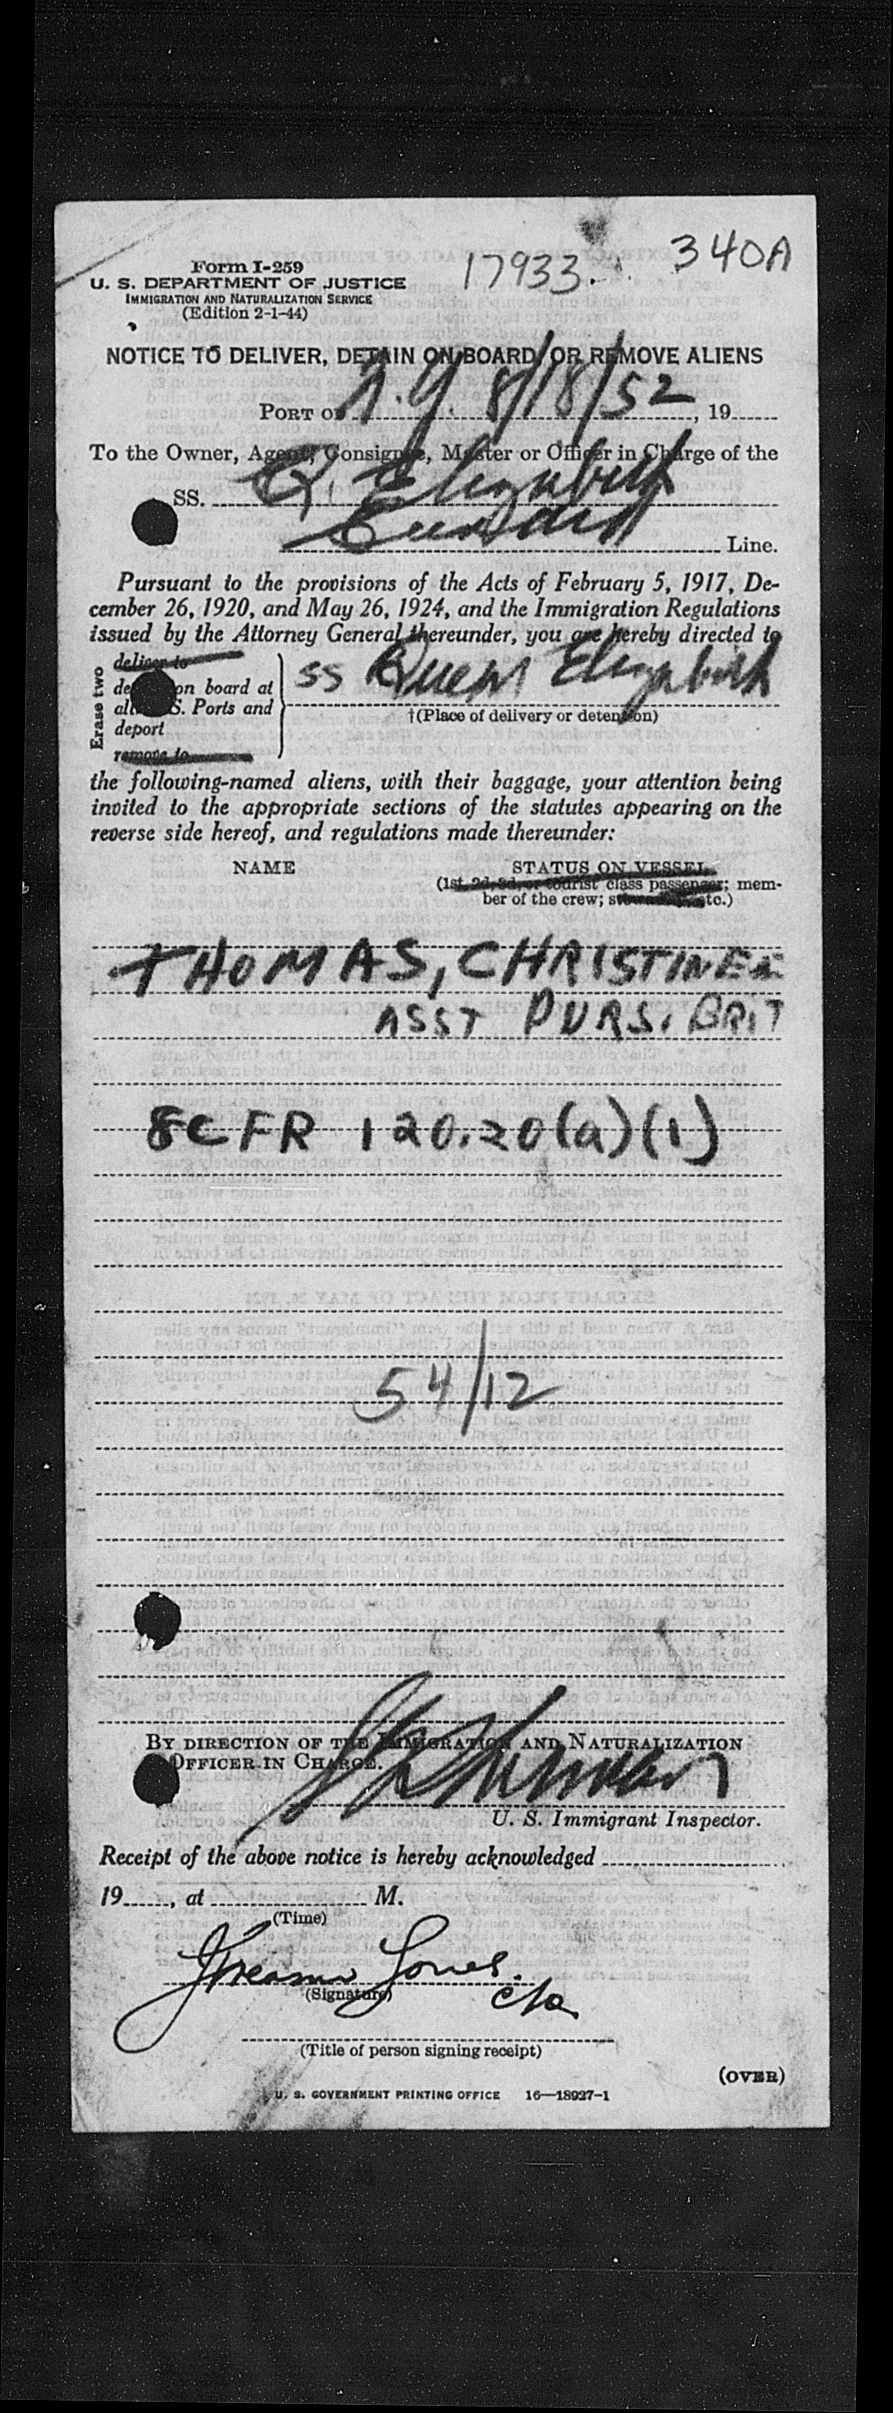 17933.
340A
Form I-259
U. S. DEPARTMENT OF JUSTICE
IMMIGRATION AND NATURALIZATION SERVICE
(Edition 2-1-44)
NOTICE TO DELIVER, DETAIN ON BOARD, OR REMOVE ALIENS
PORT OF N.Y. 8/18/52, 19
To the Owner, Agent, Consignee, Master or Officer in Charge of the
SS. Q. Elizabeth
Cunard Line.
Pursuant to the provisions of the Acts of February 5, 1917, De-
cember 26, 1920, and May 26, 1924, and the Immigration Regulations
issued by the Attorney General thereunder, you are hereby directed to
Erase two
deliver to
on board at
S. Ports and
deport
remove to
SS Queen Elizabeth
†(Place of delivery or detention)
the following-named aliens, with their baggage, your attention being
invited to the appropriate sections of the statutes appearing on the
reverse side hereof, and regulations made thereunder:
NAME STATUS ON VESSEL
(1st, 2d, 3d, or tourist class passenger; mem-
ber of the crew; etc.)
THOMAS, CHRISTINE
ASST PURS. BRIT
8CFR 120.20(a)(1)
54/12
BY DIRECTION OF THE IMMIGRATION AND NATURALIZATION
OFFICER IN CHARGE.
U. S. Immigrant Inspector.
Receipt of the above notice is hereby acknowledged
19, at M.
(Time)
Jones.
(Signature)
(Title of person signing receipt)
(OVER)
U. S. GOVERNMENT PRINTING OFFICE 16—18927-1